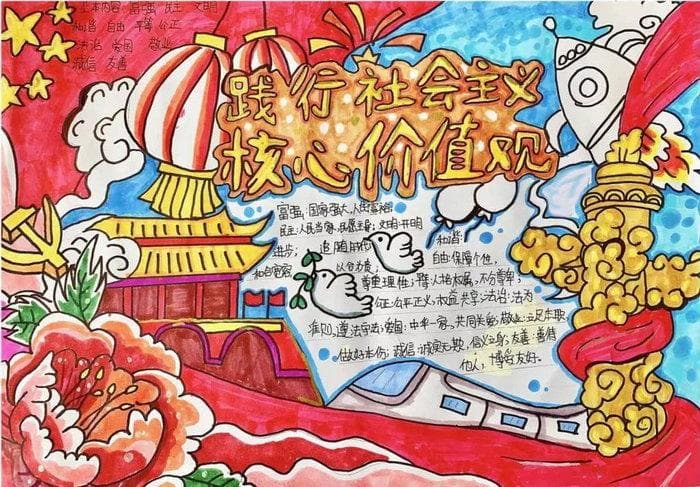 基本内容：富强 民主 文明
和谐 自由 平等 公正
法治 爱国 敬业
诚信 友善
践行社会主义
核心价值观
富强：国家强大，人民富裕
民主：人民当家，民愿主事；文明：开明
进步；追随时代
以合力度，
和谐
自由：保障个性，
尊重理性；平等：人格本属，不分尊卑；
公正：公平正义，权益共享；法治：法为
准则，遵法守法；爱国：中华一家，共同关爱；敬业：立足本职
做好本份；诚信：诚実无欺，信义立身；友善：善待
他人，博爱友好。